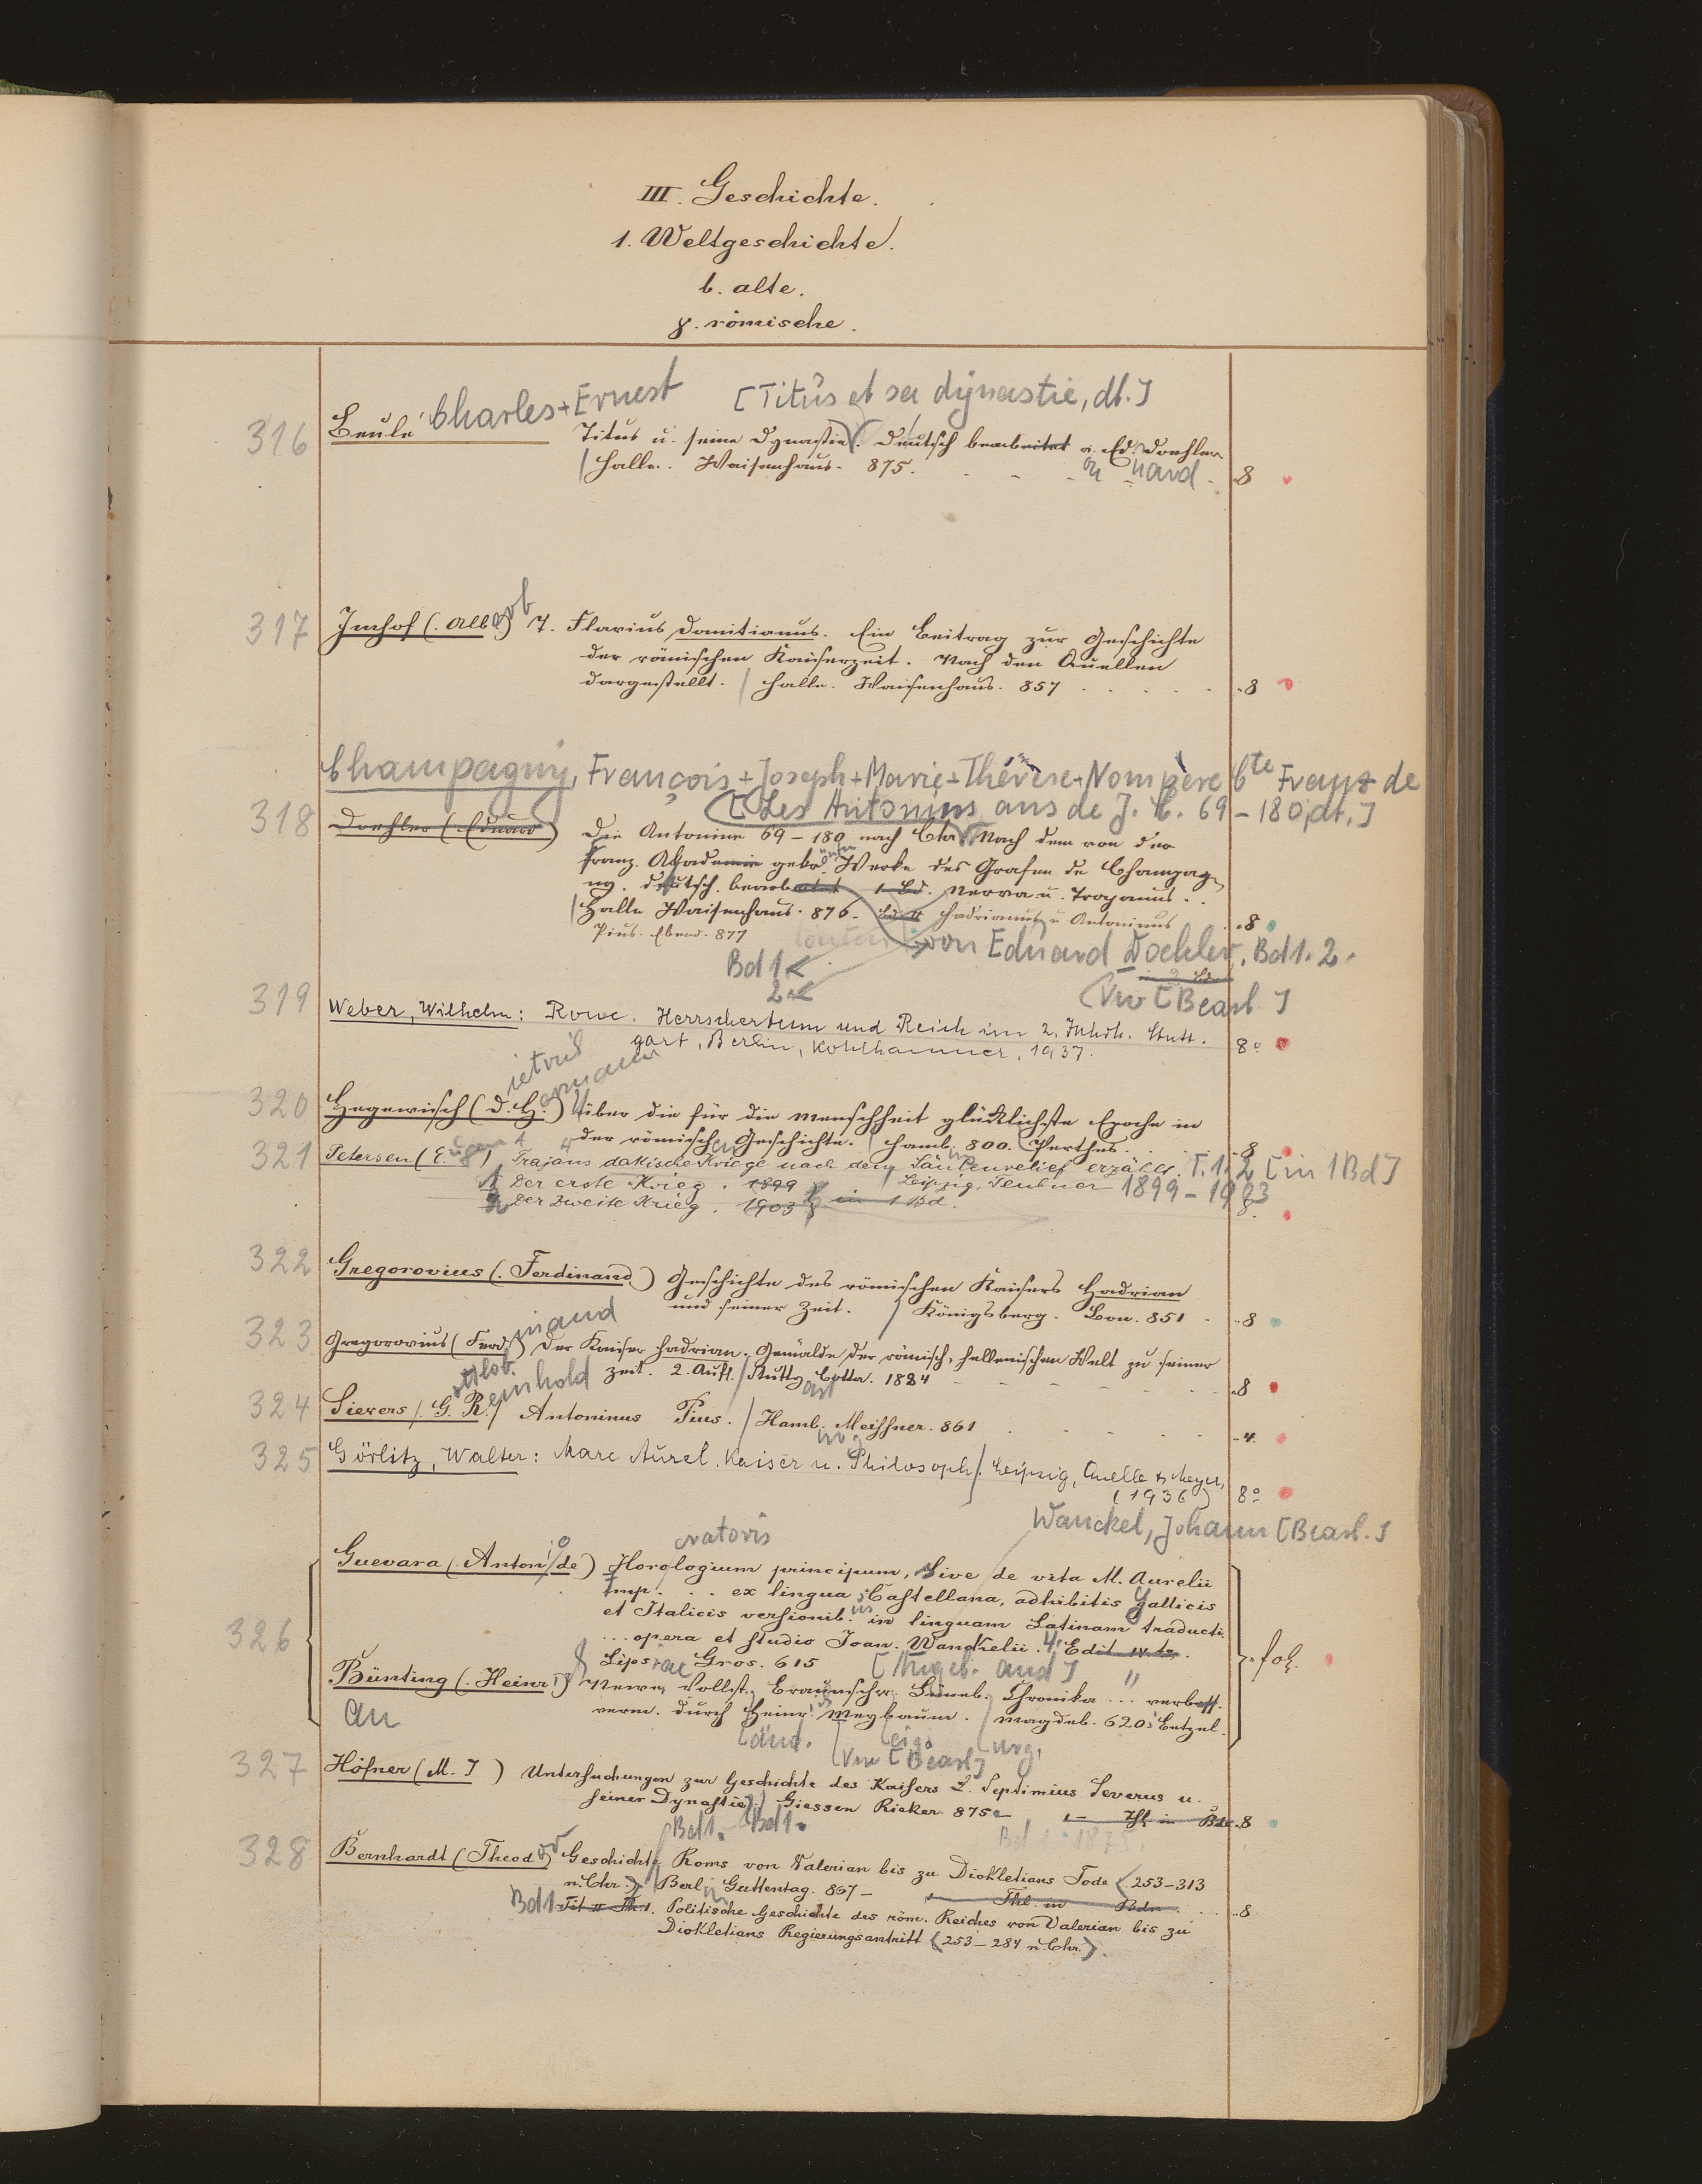 III. Geschichte.
1. Weltgeschichte.
b. alte.
γ. römische.
Charles+Ernest [Titus et sa dynastie, dt.]
316 Beulé Titus u. seine Dynastie. Deutsch bearbeitet v. Ed. Doehler
Halle. Waisenhaus. 875. on uard 8
317 Imhof (Alb.) ert T. Flavius Domitianus. Ein Beitrag zur Geschichte
der römischen Kaiserzeit. Nach den Quellen
dargestellt. / Halle. Waisenhaus. 857 8
Champagny, François+Joseph+Marie+Thérèse+Nompère Cte Franz de
[Les Antonins, ans de J. C. 69-180, dt.]
318 Doehler (Eduard) Die Antonine 69-180 nach Chr. Nach dem von der
franz. Akademie gekr. Werke des Grafen de Champag-
ny. deutsch. bearbeitet 1 Bd. Nerva u. Trajanus.
Halle Waisenhaus. 876. Bd II Hadrianus u Antoninus 8
Pius. Ebend. 877
von Eduard Doehler. Bd 1. 2.
Bd 1<
in 2 Bdn
2<
(Vw [Bearb.]
319 Weber, Wilhelm: Rom. Herrschertum und Reich im 2. Jahrh. Stutt-
gart, Berlin, Kohlhammer, 1937. 8°
ietrich
ermann
320 Hegewisch (D. H.) Über die für die Menschheit glücklichste Epoche in
der römischen Geschichte. / Hamb. 800. Perthes. 8
321 Petersen (E. ugen) Trajans dakische Kriege nach dem Säulenrelief erzählt. T. 1. 2 [in 1 Bd]
1 Der erste Krieg. 1899 / Leipzig, Teubner 1899-1903
2 Der zweite Krieg. 1903 in 1 Bd. 8.
322 Gregorovius (Ferdinand) Geschichte des römischen Kaisers Hadrian
und seiner Zeit. / Königsberg. Bon. 851 8
inand
323 Gregorovius (Ferd.) Der Kaiser Hadrian. Gemälde der römisch-hellenischen Welt zu seiner
Zeit. 2. Aufl. / Stuttg. Cotta. 1884 8
ottlob. einhold
art
324 Sievers (G. R.) Antoninus Pius. / Hamb. Meissner. 861 4.
urg
325 Görlitz, Walter: Marc Aurel. Kaiser u. Philosoph. / Leipzig, Quelle & Meyer,
(1936) 8°
Wanckel, Johann [Bearb.]
eratoris
326 Guevara (Antonio de) Horologium principum, sive de vita M. Aurelii
Imp. ... ex lingua Castellana, adhibitis Gallicis
et Italicis versionib. us in linguam Latinam traducti.
... opera et studio Joan. Wanckelii. 4. Edit. IV. ta.
Lipsiae Gros. 615 fol.
[Angeb. and]
Bünting (Heinr.) Newe, Vollst. Braunschw. Lüneb. Chronika ... verbess.
verm. durch Heinr. Meybaum. / Magdeb. 620. Betzel.
An
länd. eig. urg.
(Vw [Bearb]
327 Höfner (M. J.) Untersuchungen zur Geschichte des Kaisers L. Septimius Severus u.
seiner Dynastie. / Giessen Ricker. 875- 1 - Thl in Bde 8
Bd 1.- Bd 1.
Bd 1: 1875
328 Bernhardt (Theod.) or Geschichte Roms von Valerian bis zu Diokletians Tode (253-313
n. Chr.) / Berlin Guttentag. 867- 1 Thl. in Bdn. 8
Bd 1 Tit II Th. 1. Politische Geschichte des röm. Reiches von Valerian bis zu
Diokletians Regierungsantritt (253-284 n. Chr.).